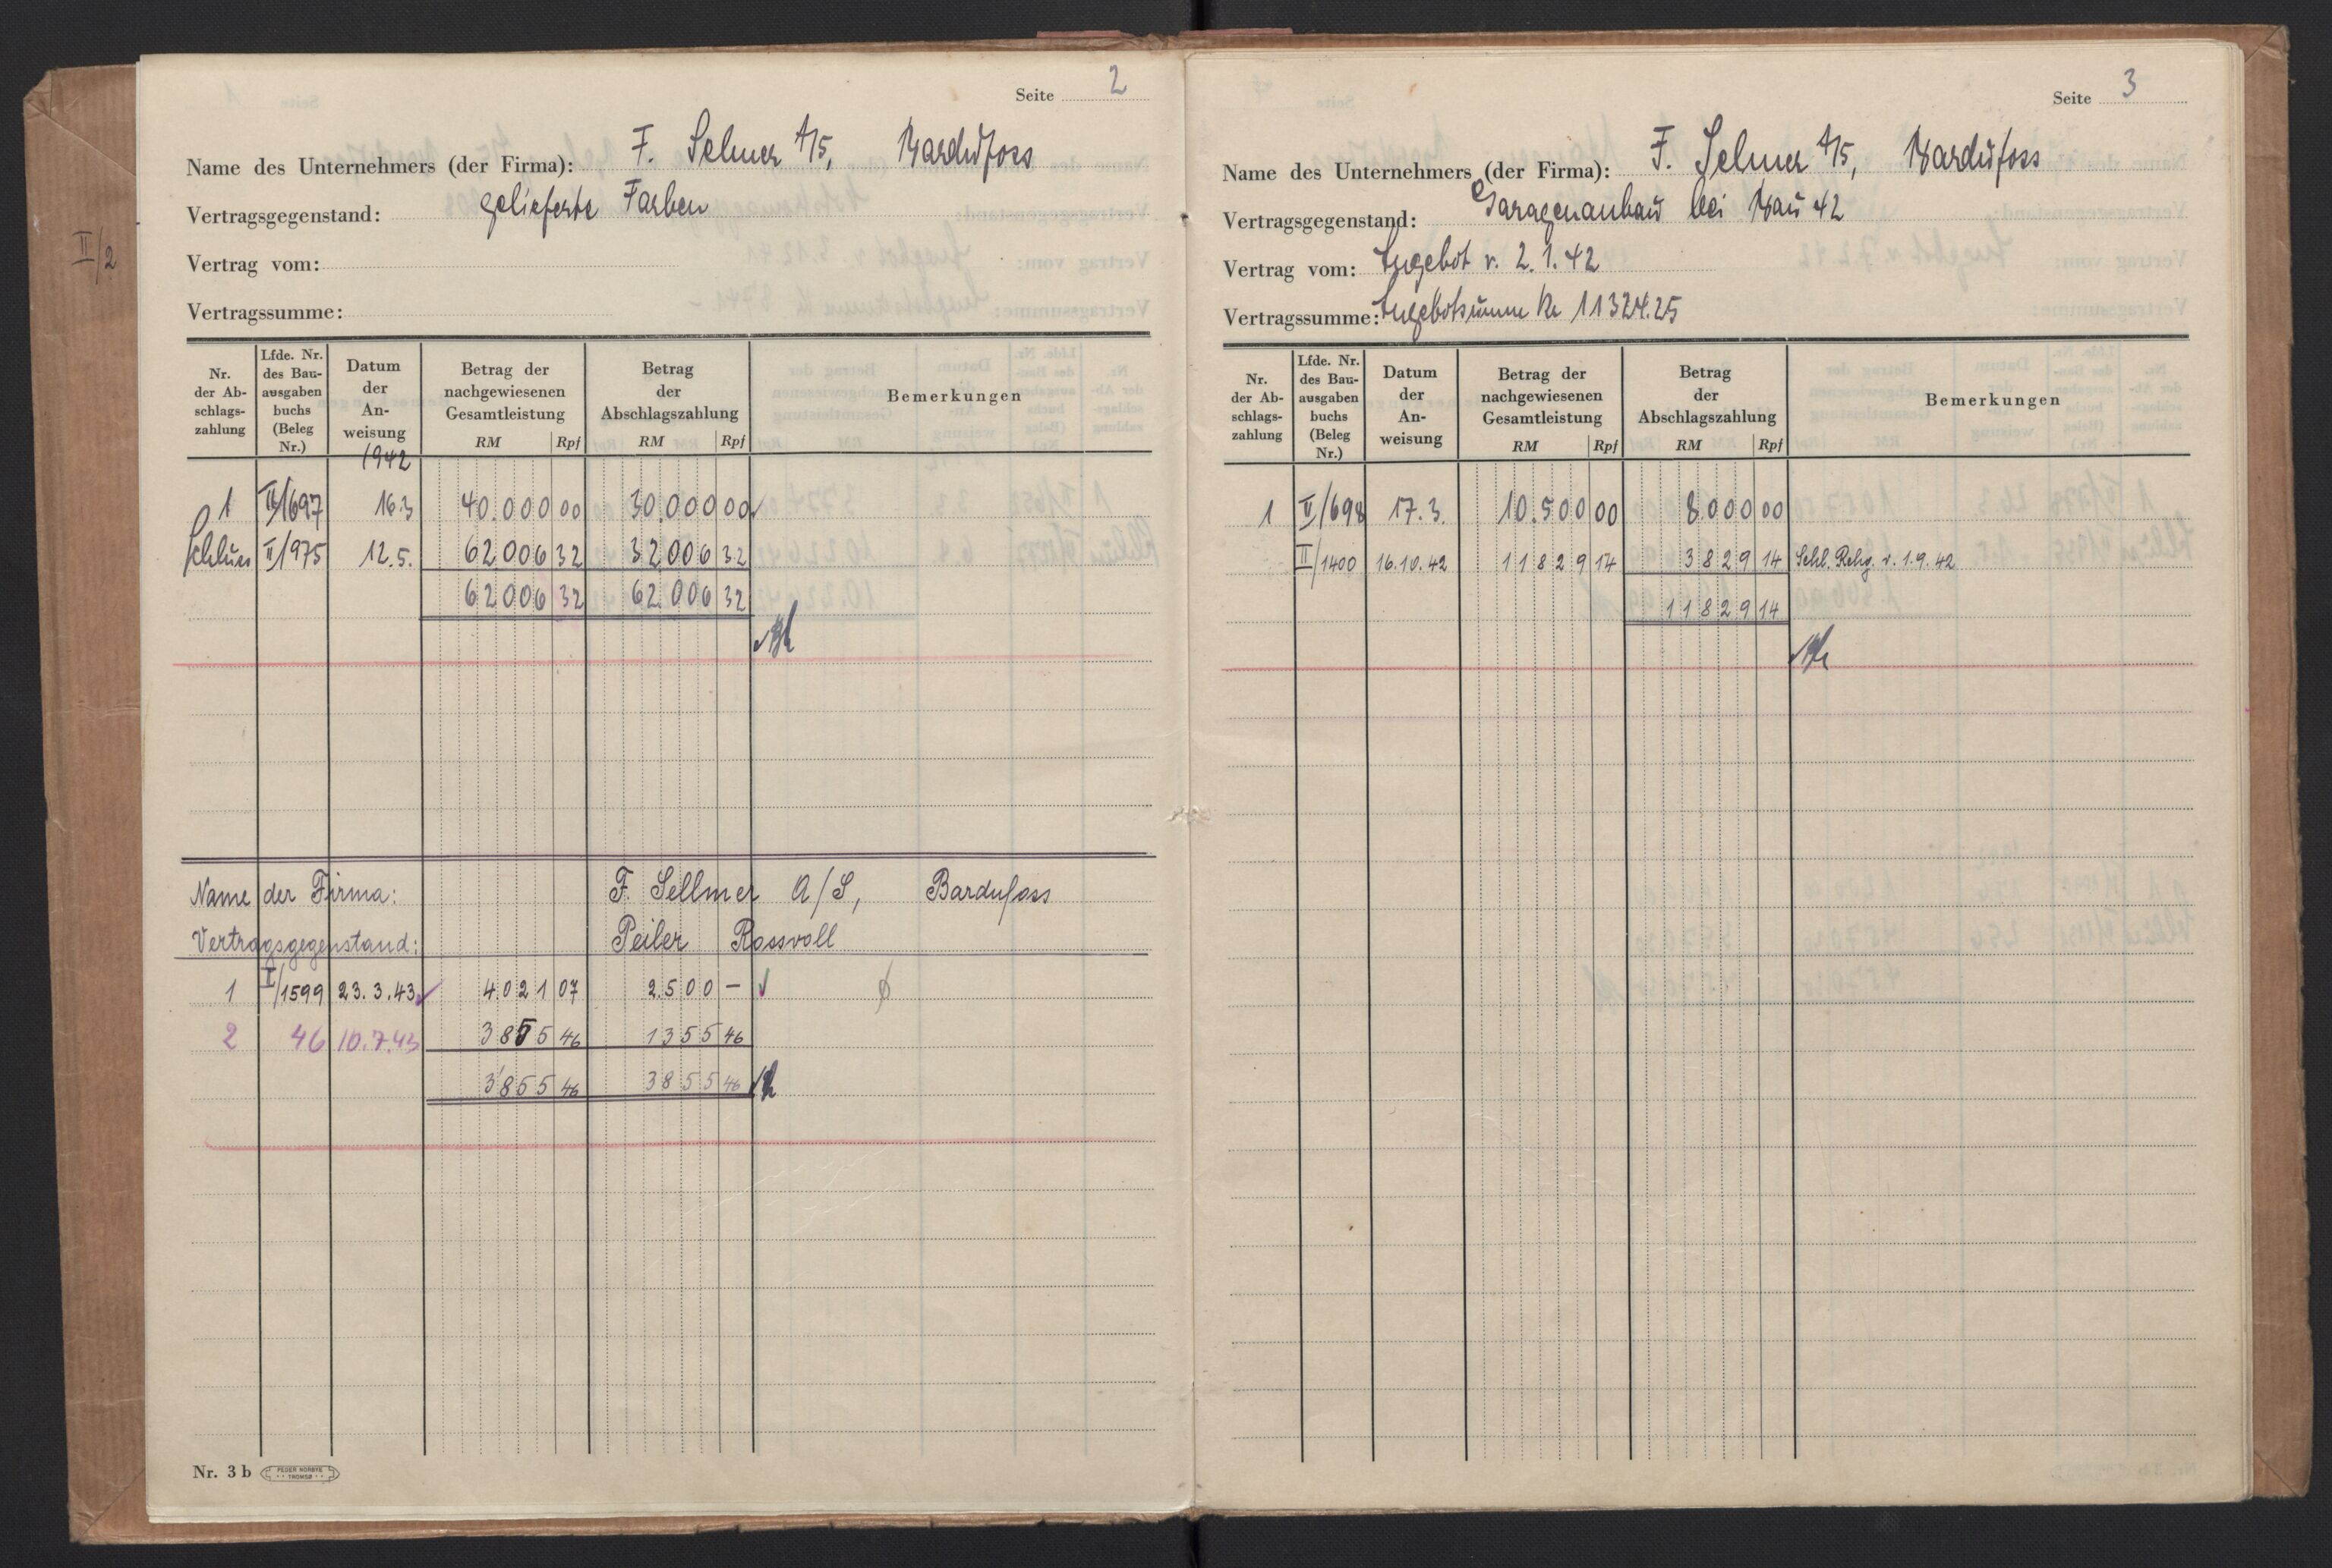 II/2
Seite 2
Name des Unternehmers (der Firma): F. Selmer A/S, Bardufoss
Vertragsgegenstand: gelieferte Farben
Vertrag vom:
Vertragssumme:
Nr. der Abschlags-zahlung | Lfde. Nr. des Bau-ausgaben buchs (Beleg Nr.) | Datum der An-weisung | Betrag der nachgewiesenen Gesamtleistung RM Rpf | Betrag der Abschlagszahlung RM Rpf | Bemerkungen
1942
1 II/697 16.3 40.000 00 30.000 00
Schluss II/975 12.5. 62006 32 32006 32
62006 32 62.006 32
Name der Firma: F. Sellmer A/S, Bardufoss
Vertragsgegenstand: Peiler Rossvoll
1 I/1599 23.3.43 4021 07 2500 –
2 46 10.7.43 3855 46 1355 46
3855 46 3855 46
Nr. 3 b PEDER NORBYE TROMSØ
Seite 3
Name des Unternehmers (der Firma): F. Selmer A/S, Bardufoss
Vertragsgegenstand: Garagenanbau bei Bau 42
Vertrag vom: Angebot v. 2.1.42
Vertragssumme: Angebotsumme Kr 11324.25
Nr. der Abschlags-zahlung | Lfde. Nr. des Bau-ausgaben buchs (Beleg Nr.) | Datum der An-weisung | Betrag der nachgewiesenen Gesamtleistung RM Rpf | Betrag der Abschlagszahlung RM Rpf | Bemerkungen
1 II/698 17.3. 10.500 00 8000 00
II/1400 16.10.42 11829 14 3829 14 Schl. Rchg. v. 1.9.42
11829 14